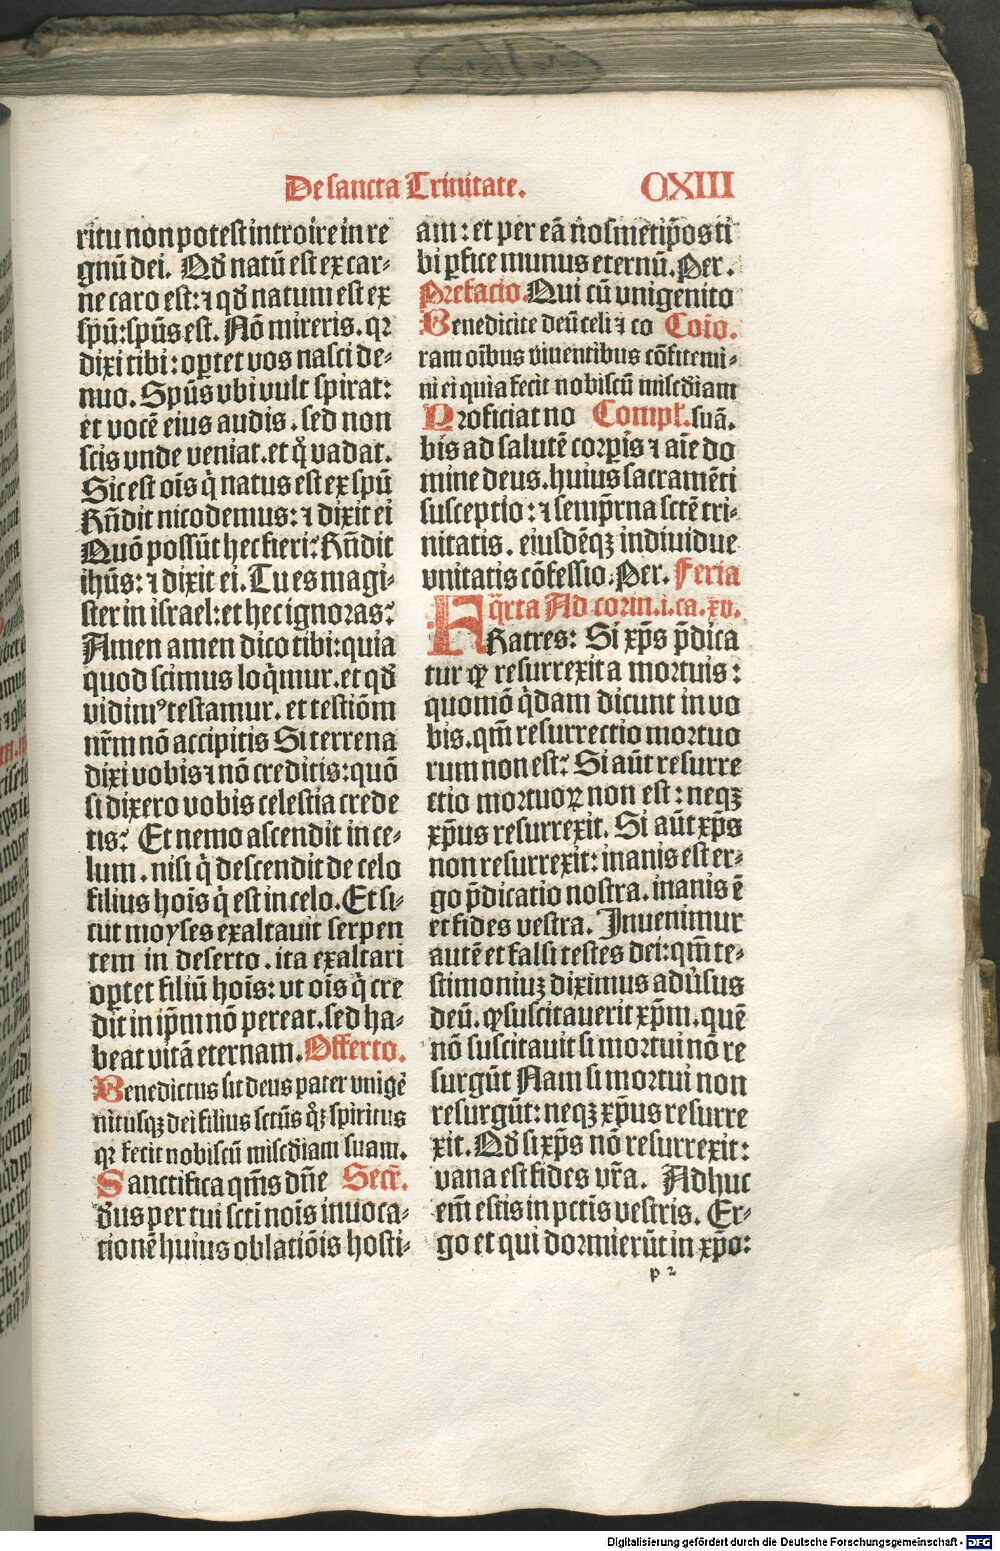 De sancta Trinitate.
CXIII
ritu non potest introire in re
gnū dei. Qđ natū est ex car-
ne caro est: ⁊ qđ natum est ex
spū: spūs est. Nō mireris. qꝛ
dixi tibi: oꝑtet vos nasci de-
nuo. Spūs vbi vult spirat:
et vocē eius audis. sed non
scis vnde veniat. et q̊ vadat.
Sic est oīs q̇ natus est ex spū
Rn̄dit nicodemus: ⁊ dixit ei
Quō possūt hec fieri? Rn̄dit
ihūs: ⁊ dixit ei. Tu es magi-
ster in israel: et hec ignoras?
Amen amen dico tibi: quia
quod scimus loq̇mur. et qđ
vidimꝰ testamur. et testiōm
nr̄m nō accipitis Si terrena
dixi vobis ⁊ nō creditis: quō
si dixero vobis celestia crede
tis? Et nemo ascendit in ce-
lum. nisi q̇ descendit de celo
filius hoīs q̇ est in celo. Et si-
cut moyses exaltauit serpen
tem in deserto. ita exaltari
oꝑtet filiū hoīs: vt oīs q̇ cre
dit in ip̄m nō pereat. sed ha-
beat vitā eternam. Offerto.
Benedictus sit deus pater vnige
nitusqꝫ dei filius sctūs q̊ꝫ spiritus
qꝛ fecit nobiscū misc̄diam suam.
Sanctifica qm̄s dn̄e Secr̄.
đus per tui sctī noīs inuoca-
tionē huius oblatiōis hosti-
am: et per eā nosmetip̄os ti
bi ꝑfice munus eternū. Per.
Prefacio. Qui cū vnigenito
Benedicite deū celi ⁊ co Coīo.
ram oībus viuentibus cōfitemi-
ni ei quia fecit nobiscū misc̄diam
Proficiat no Compl̄. suā.
bis ad salutē corꝑis ⁊ aīe do
mine deus. huius sacramēti
susceptio: ⁊ semp̄rna sctē tri-
nitatis. eiusdēqꝫ indiuidue
vnitatis cōfessio. Per. Feria
q̄rta Ad corin. i. ca. xv.
FRatres: Si xp̄s p̄dica
tur ꝙ resurrexit a mortuis:
quomō q̇dam dicunt in vo
bis. qm̄ resurrectio mortuo
rum non est? Si aūt resurre
ctio mortuoꝝ non est: neqꝫ
xp̄us resurrexit. Si aūt xp̄s
non resurrexit: inanis est er-
go p̄dicatio nostra. inanis ē
et fides vestra. Inuenimur
autē et falsi testes dei: qm̄ te-
stimoniuꝫ diximus adūsus
deū. ꝙ suscitauerit xp̄m. quē
nō suscitauit si mortui nō re
surgūt Nam si mortui non
resurgūt: neqꝫ xp̄us resurre
xit. Qđ si xp̄s nō resurrexit:
vana est fides vr̄a. Adhuc
em̄ estis in pctīs vestris. Er-
go et qui dormierūt in xp̄o:
p 2
Digitalisierung gefördert durch die Deutsche Forschungsgemeinschaft - DFG